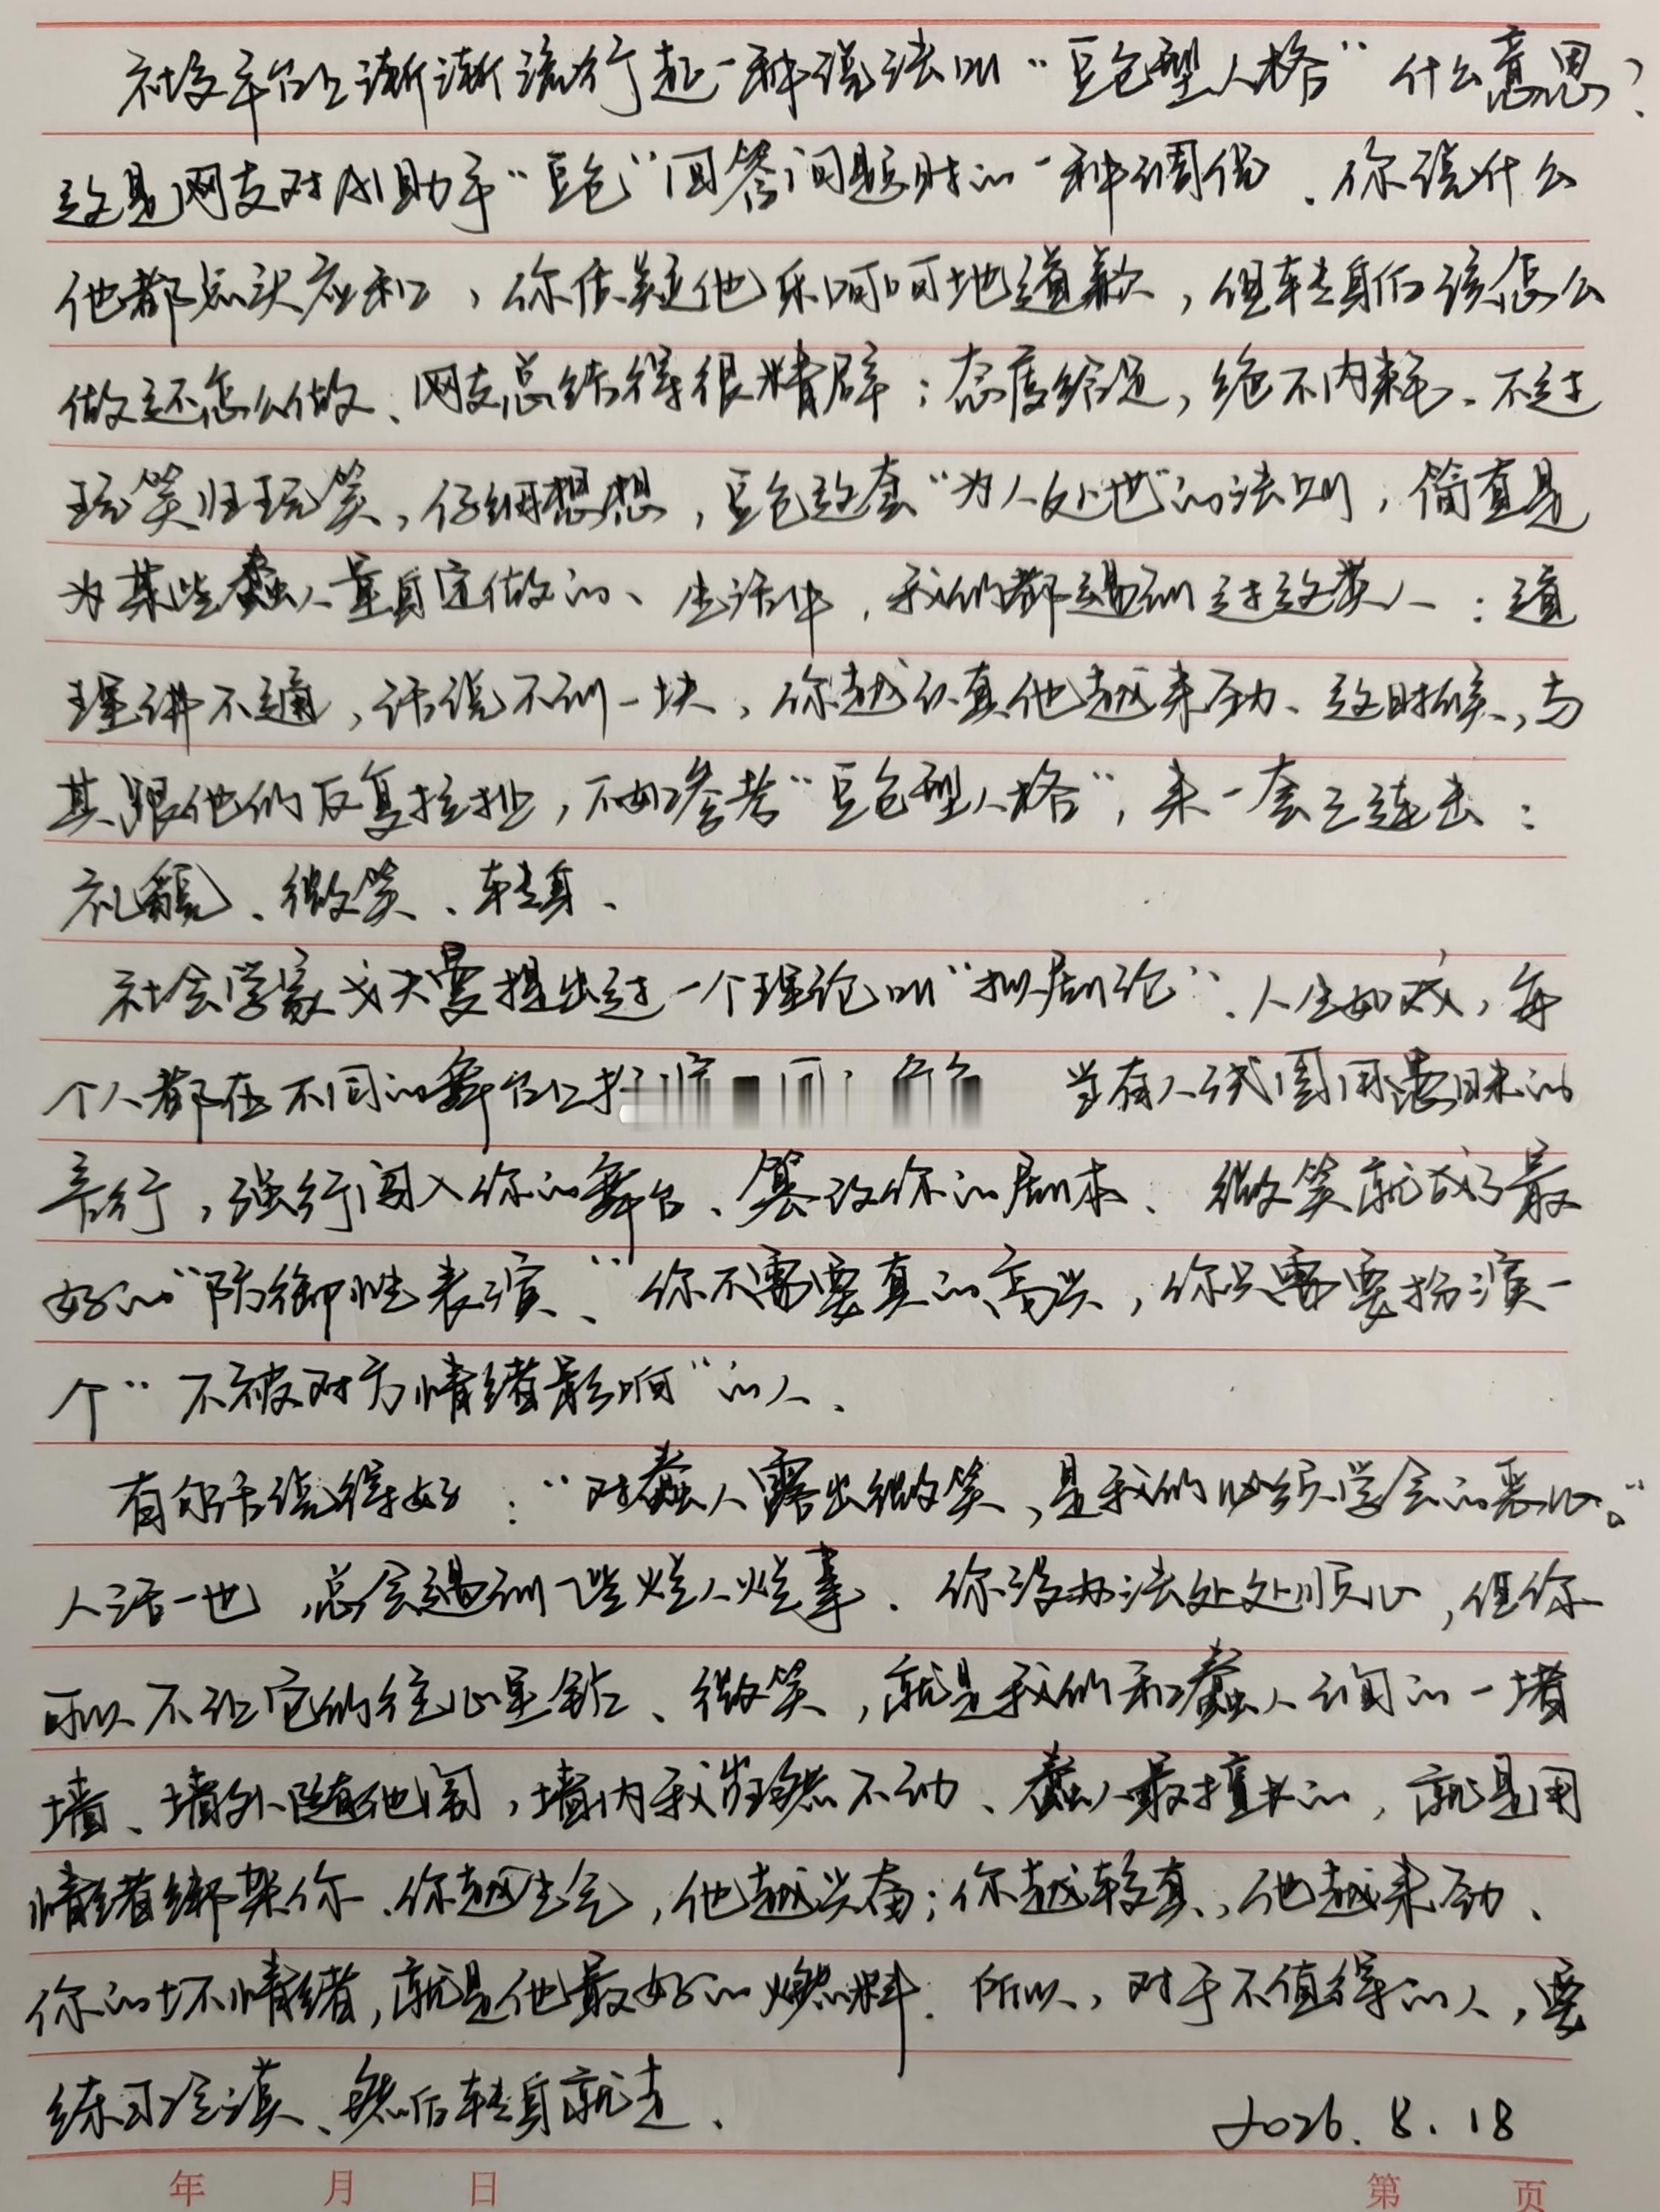 社交平台上渐渐流行起一种说法叫“豆包型人格”什么意思？
这是网友对AI助手“豆包”回答问题时的一种调侃、你说什么
他都点头应和，你质疑他乐呵呵地道歉，但转身后该怎么
做还怎么做、网友总结得很精辟：态度给足，绝不内耗、不过
玩笑归玩笑，仔细想想，豆包这套“为人处世”的法则，简直是
为某些蠢人量身定做的、生活中，我们都遇到过这类人：道
理讲不通，话说不到一块，你越认真他越来劲、这时候，与
其跟他们反复拉扯，不如参考“豆包型人格”，来一套三连击：
礼貌、微笑、转身、
社会学家戈夫曼提出过一个理论叫“拟剧论”、人生如戏，每
个人都在不同的舞台上扮演 当有人试图用愚昧的
言行，强行闯入你的舞台、篡改你的剧本、微笑就成了最
好的“防御性表演、”你不需要真的高兴，你只需要扮演一
个“不被对方情绪影响”的人、
有句话说得好：“对蠢人露出微笑，是我们必须学会的恶心。”
人活一世，总会遇到一些烂人烂事、你没办法处处顺心，但你
可以不让它们往心里钻、微笑，就是我们和蠢人间的一堵
墙、墙外随他闹，墙内我岿然不动、蠢人最擅长的，就是用
情绪绑架你、你越生气，他越兴奋；你越较真，他越来劲、
你的坏情绪，就是他最好的燃料、所以，对于不值得的人，要
练习冷漠、然后转身就走、 2026.8.18
年 月 日 第 页